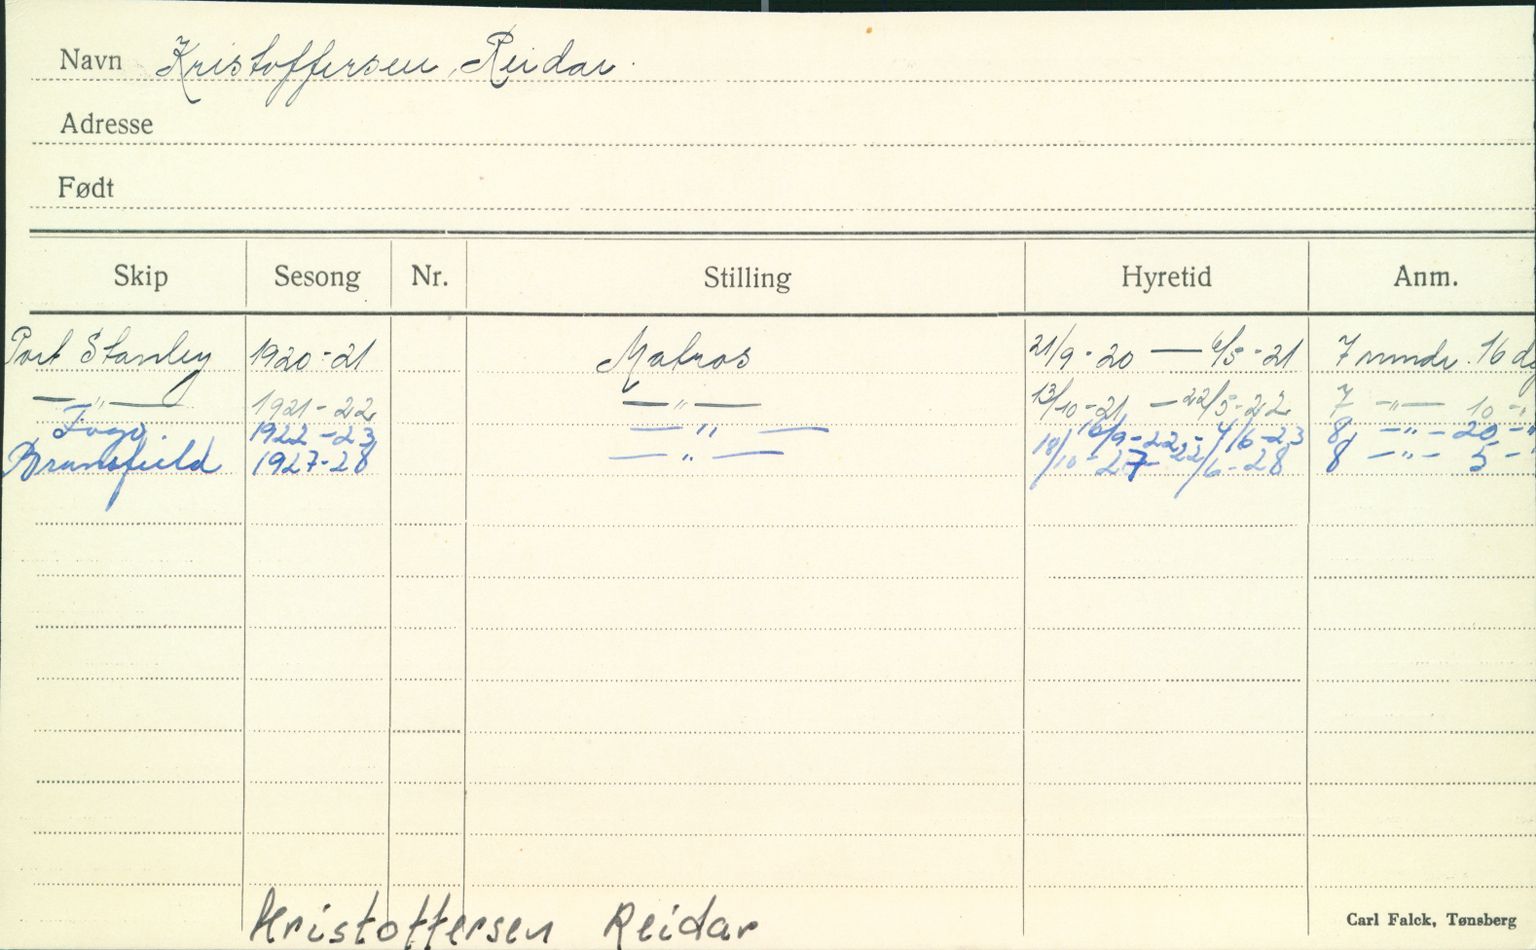 Navn Kristoffersen, Reidar.
Adresse
Født
Skip Sesong Nr. Stilling Hyretid Anm.
Port Stanley 1920-21 Matros 21/9-20 — 6/5-21 7 mndr. 16 dg
—"— 1921-22 —"— 13/10-21 — 22/5-22 7 —"— 10 -"
Fogo. 1922-23 —"— 16/9-22 - 4/6-23 8 —"— 20 -"
Bransfield 1927-28 —"— 18/10-27 - 22/6-28 8 —"— 5 -"
Kristoffersen Reidar
Carl Falck, Tønsberg